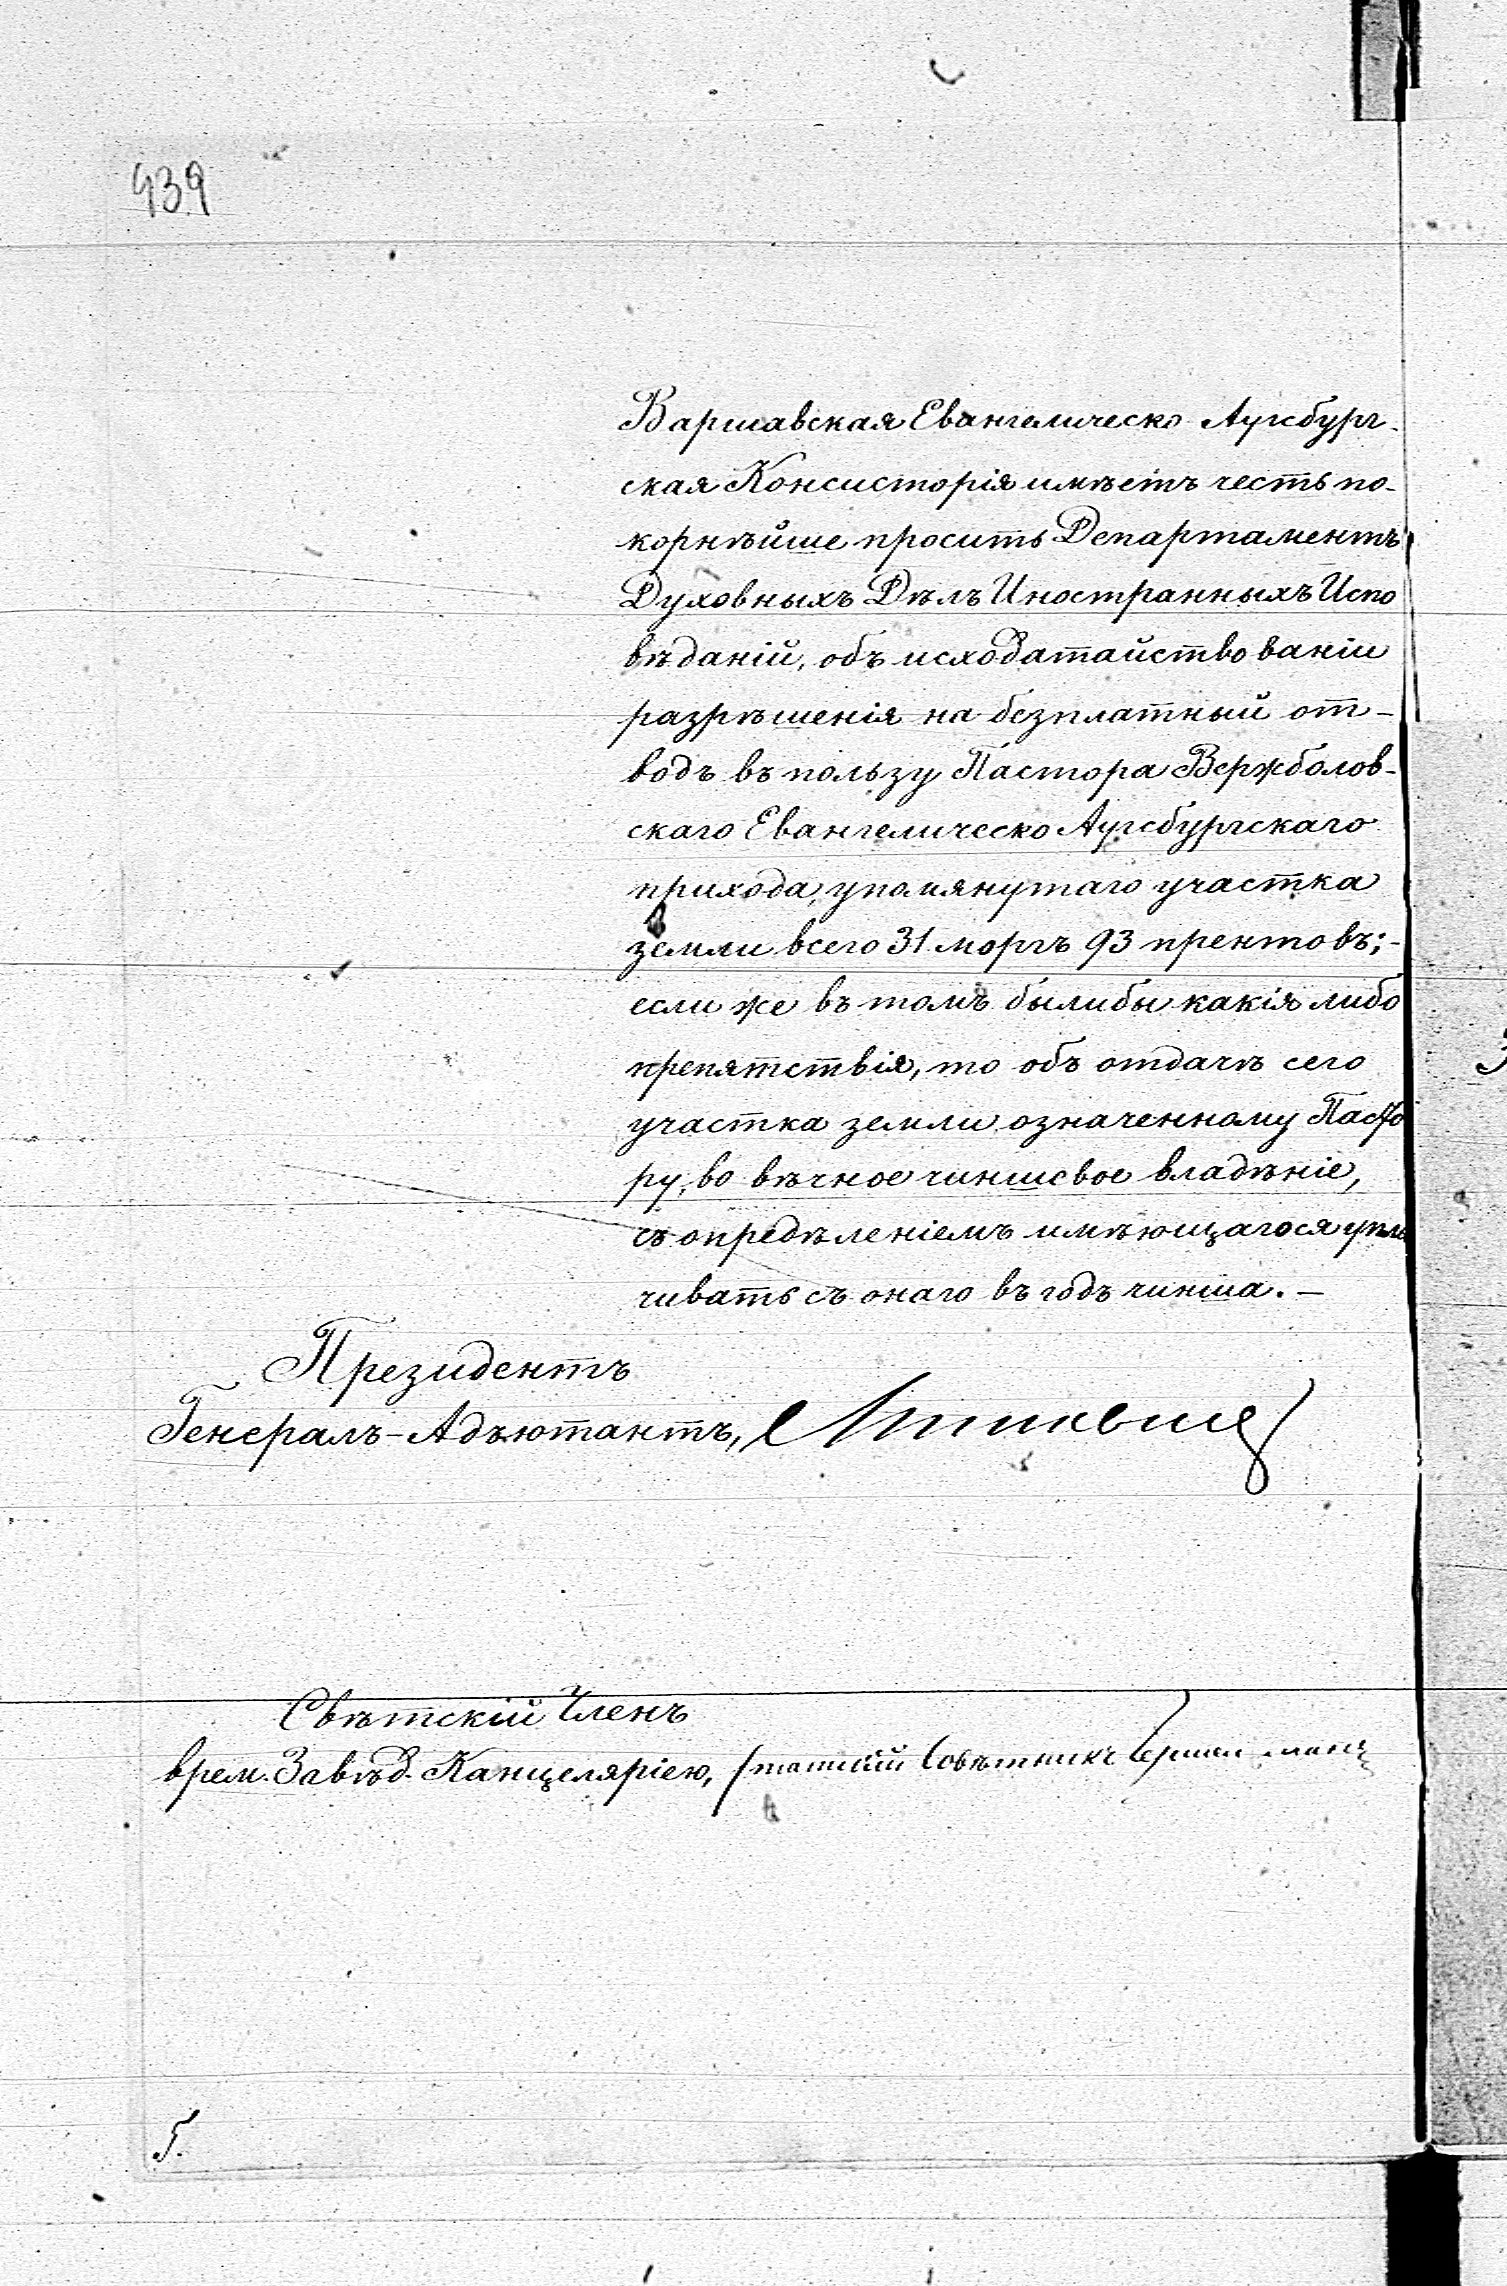 439
Варшавская Евангелическо Аугсбург-
ская Консисторія имѣетъ честь по-
корнѣйше просить Департаментъ
Духовныхъ Дѣлъ Иностранныхъ Испо
вѣданій, объ исходатайствованіи
разрѣшенія на безплатный от-
водъ въ пользу Пастора Вержболов-
скаго Евангелическо Аугсбургскаго
прихода, упомянутаго участка
земли всего 31 моргъ 93 прентовъ;-
если же въ томъ былибы какія либо
препятствія, то объ отдачѣ сего
участка земли означенному Пасто
ру, во вѣчное чиншевое владѣніе,
съ опредѣленіемъ имѣющагося упла
чивать съ онаго въ годъ чинша. –
Президентъ
Генералъ-Адъютантъ,
Свѣтскій Членъ
врем. Завѣд. Канцеляріею, Статскій Совѣтникъ
5.